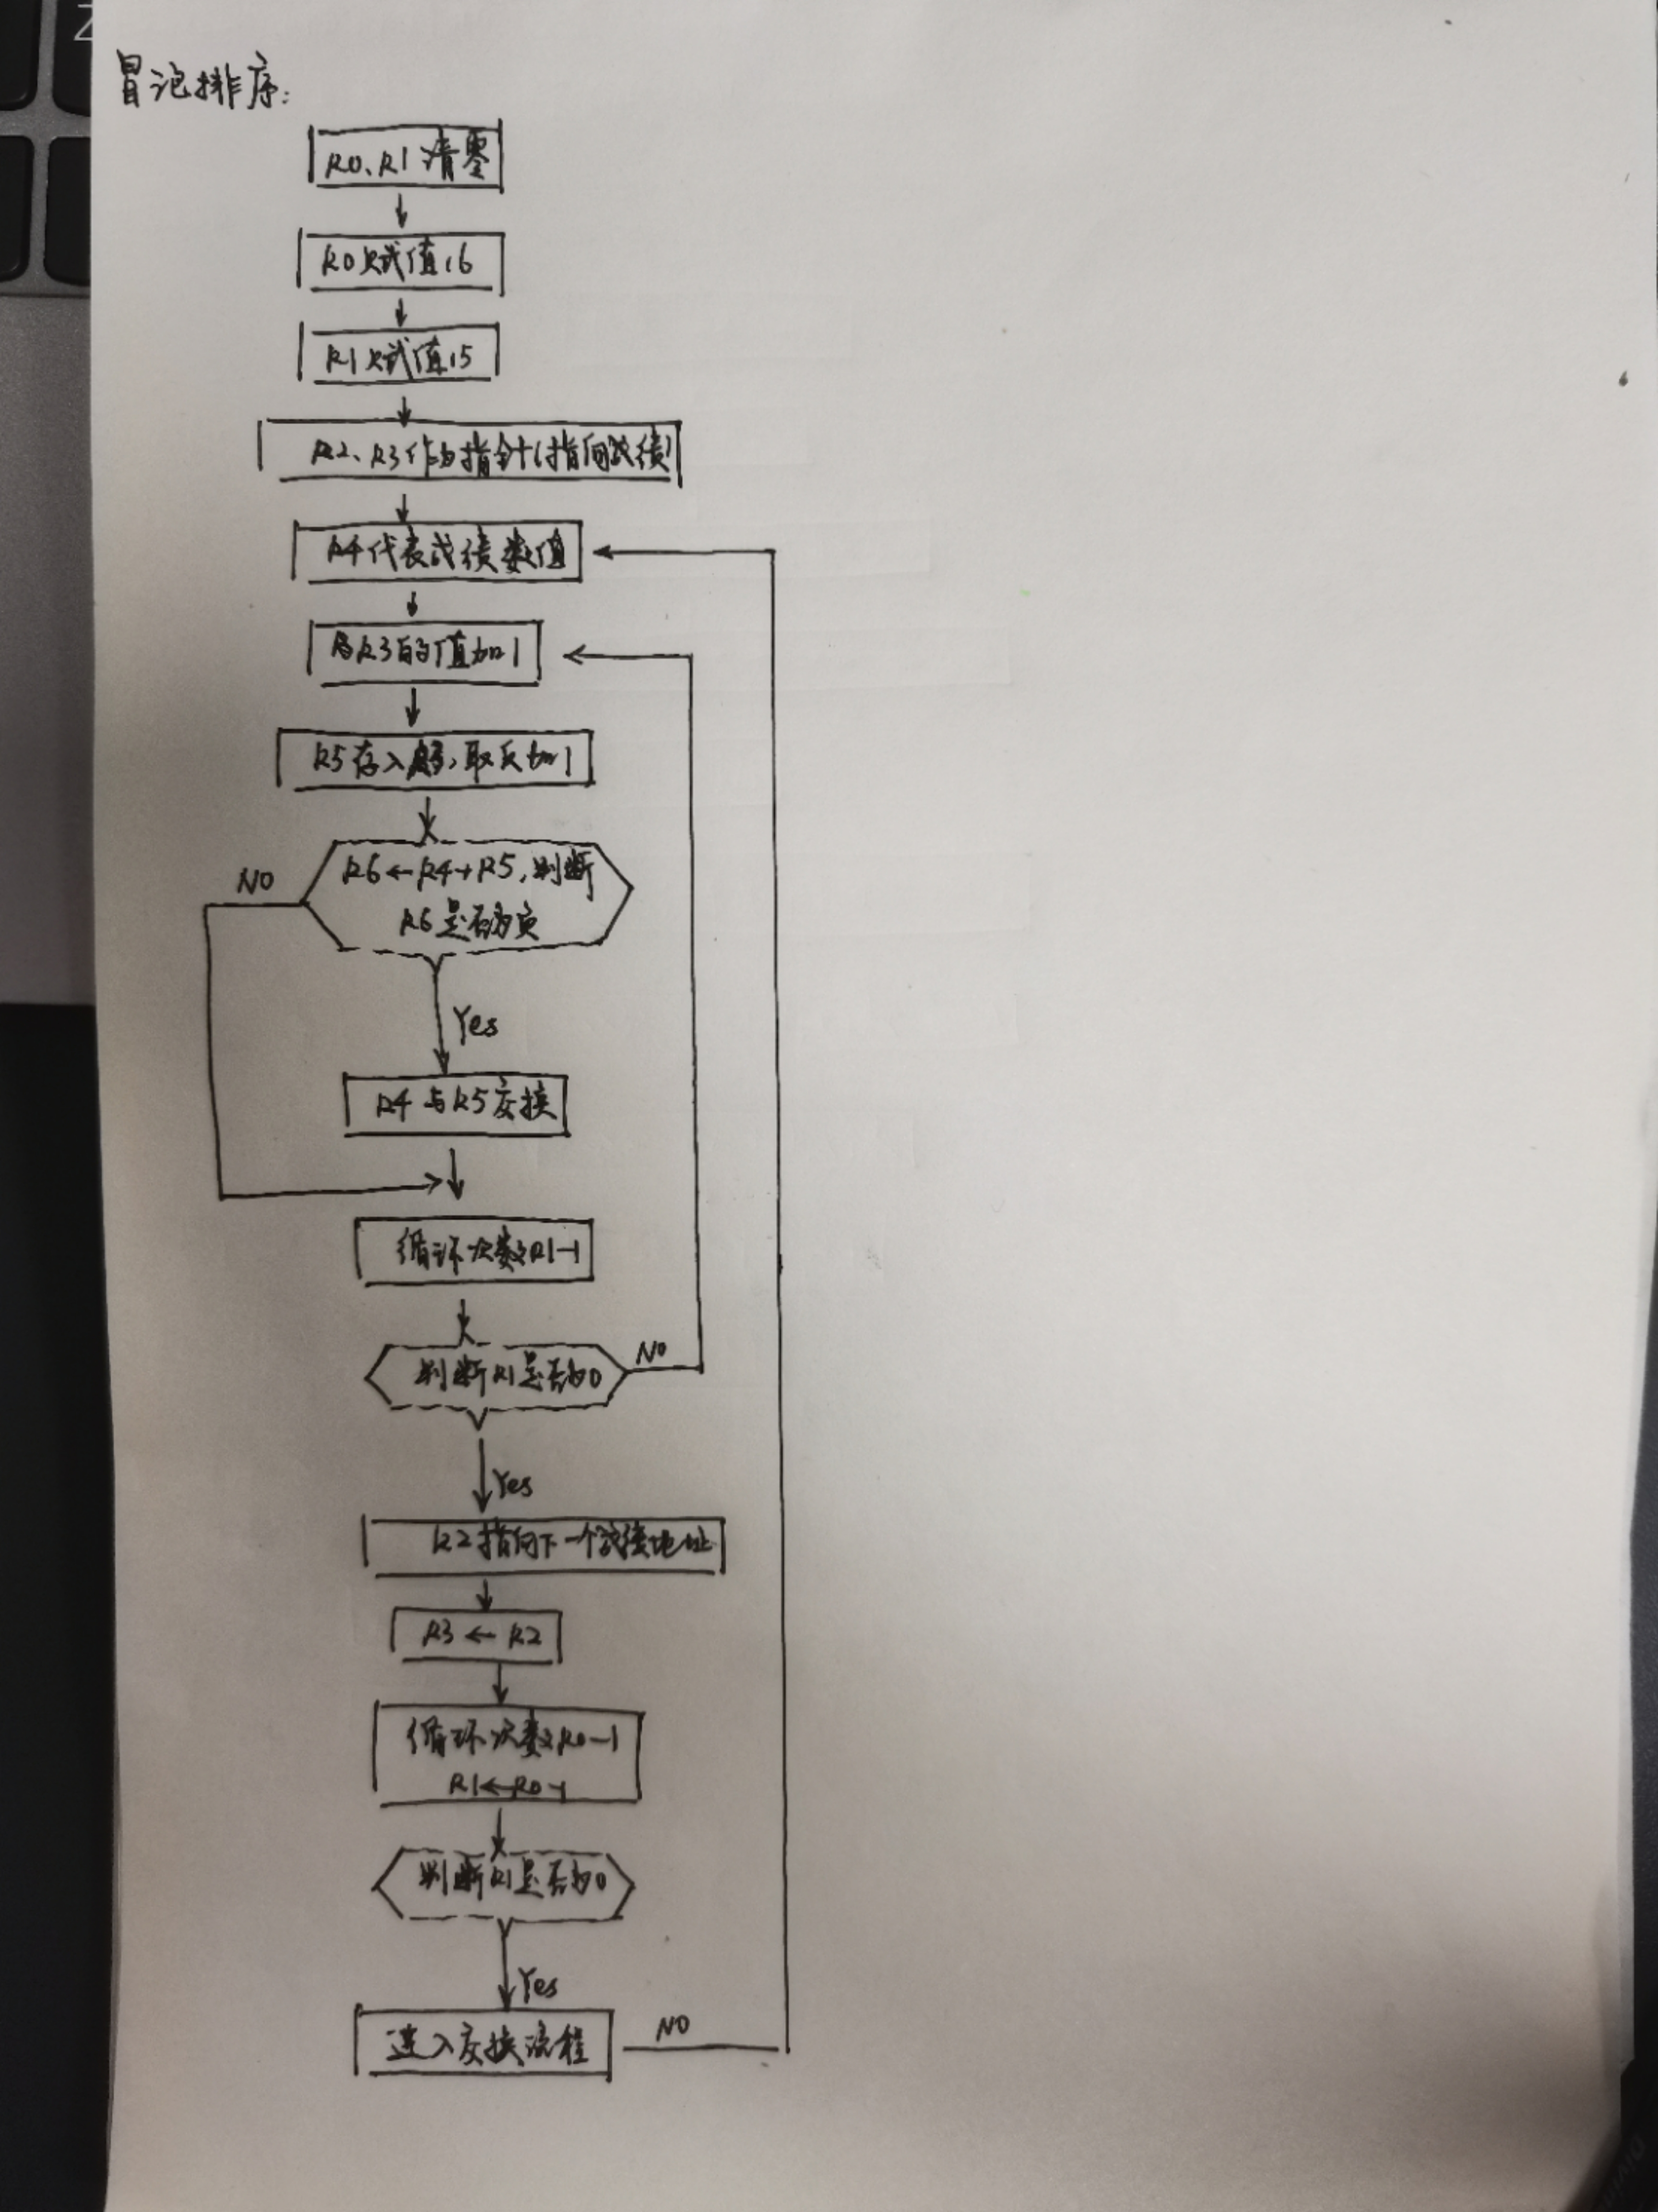 冒泡排序:
R0、R1清零
R0赋值16
R1赋值15
R2、R3作为指针(指向成绩)
R4代表成绩数值
将R3的值加1
R5存入,取反加1
R6←R4+R5,判断
R6是否为负
NO
Yes
R4与R5交换
循环次数R1-1
判断R1是否为0
NO
Yes
R2指向下一个成绩地址
R3←R2
循环次数R0-1
R1←R0-1
判断R1是否为0
Yes
进入交换流程
NO